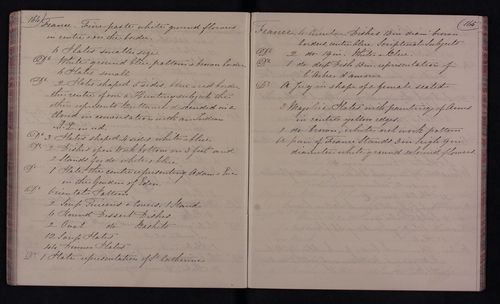 164
France. Fine paste white ground flowers
in centre on the border
6 Plates smaller size
Do White ground blue pattern & brown border
6 Plates small
Do 2 Plates shaped 8 sides blue and border
the centre of one a subject the
other represents
in conversation with an Indian
Do 3 Plates shaped 8 sides white & blue
Do 2 Dishes open work bottom on 3 feet and
2 Stands for do white & blue
Do 1 Plate the centre representing Adam & Eve
in the Garden of Eden
Do Oriental Pattern
2 Soup Tureens & covers, 1 Stand
6 Round Dessert Dishes
2 Oval do Baskets
12 Soup Plates
44 Dinner Plates
Do 1 Plate representation of St Catherine
165
France 4 Circular Dishes 13 in diam brown
borders centre blue Scriptural Subjects
Do 2 do 13 in White & blue
Do 1 do dept Dish 13 in representation of
l'Arbre d'amour
Do A Jug in shape of a female seated
2 Majolica Plates with paintings of Arms
in centre yellow edges
1 do brown, white net work pattern
A pair of France Stands 3 in high 9 in
diameter white ground coloured flowers